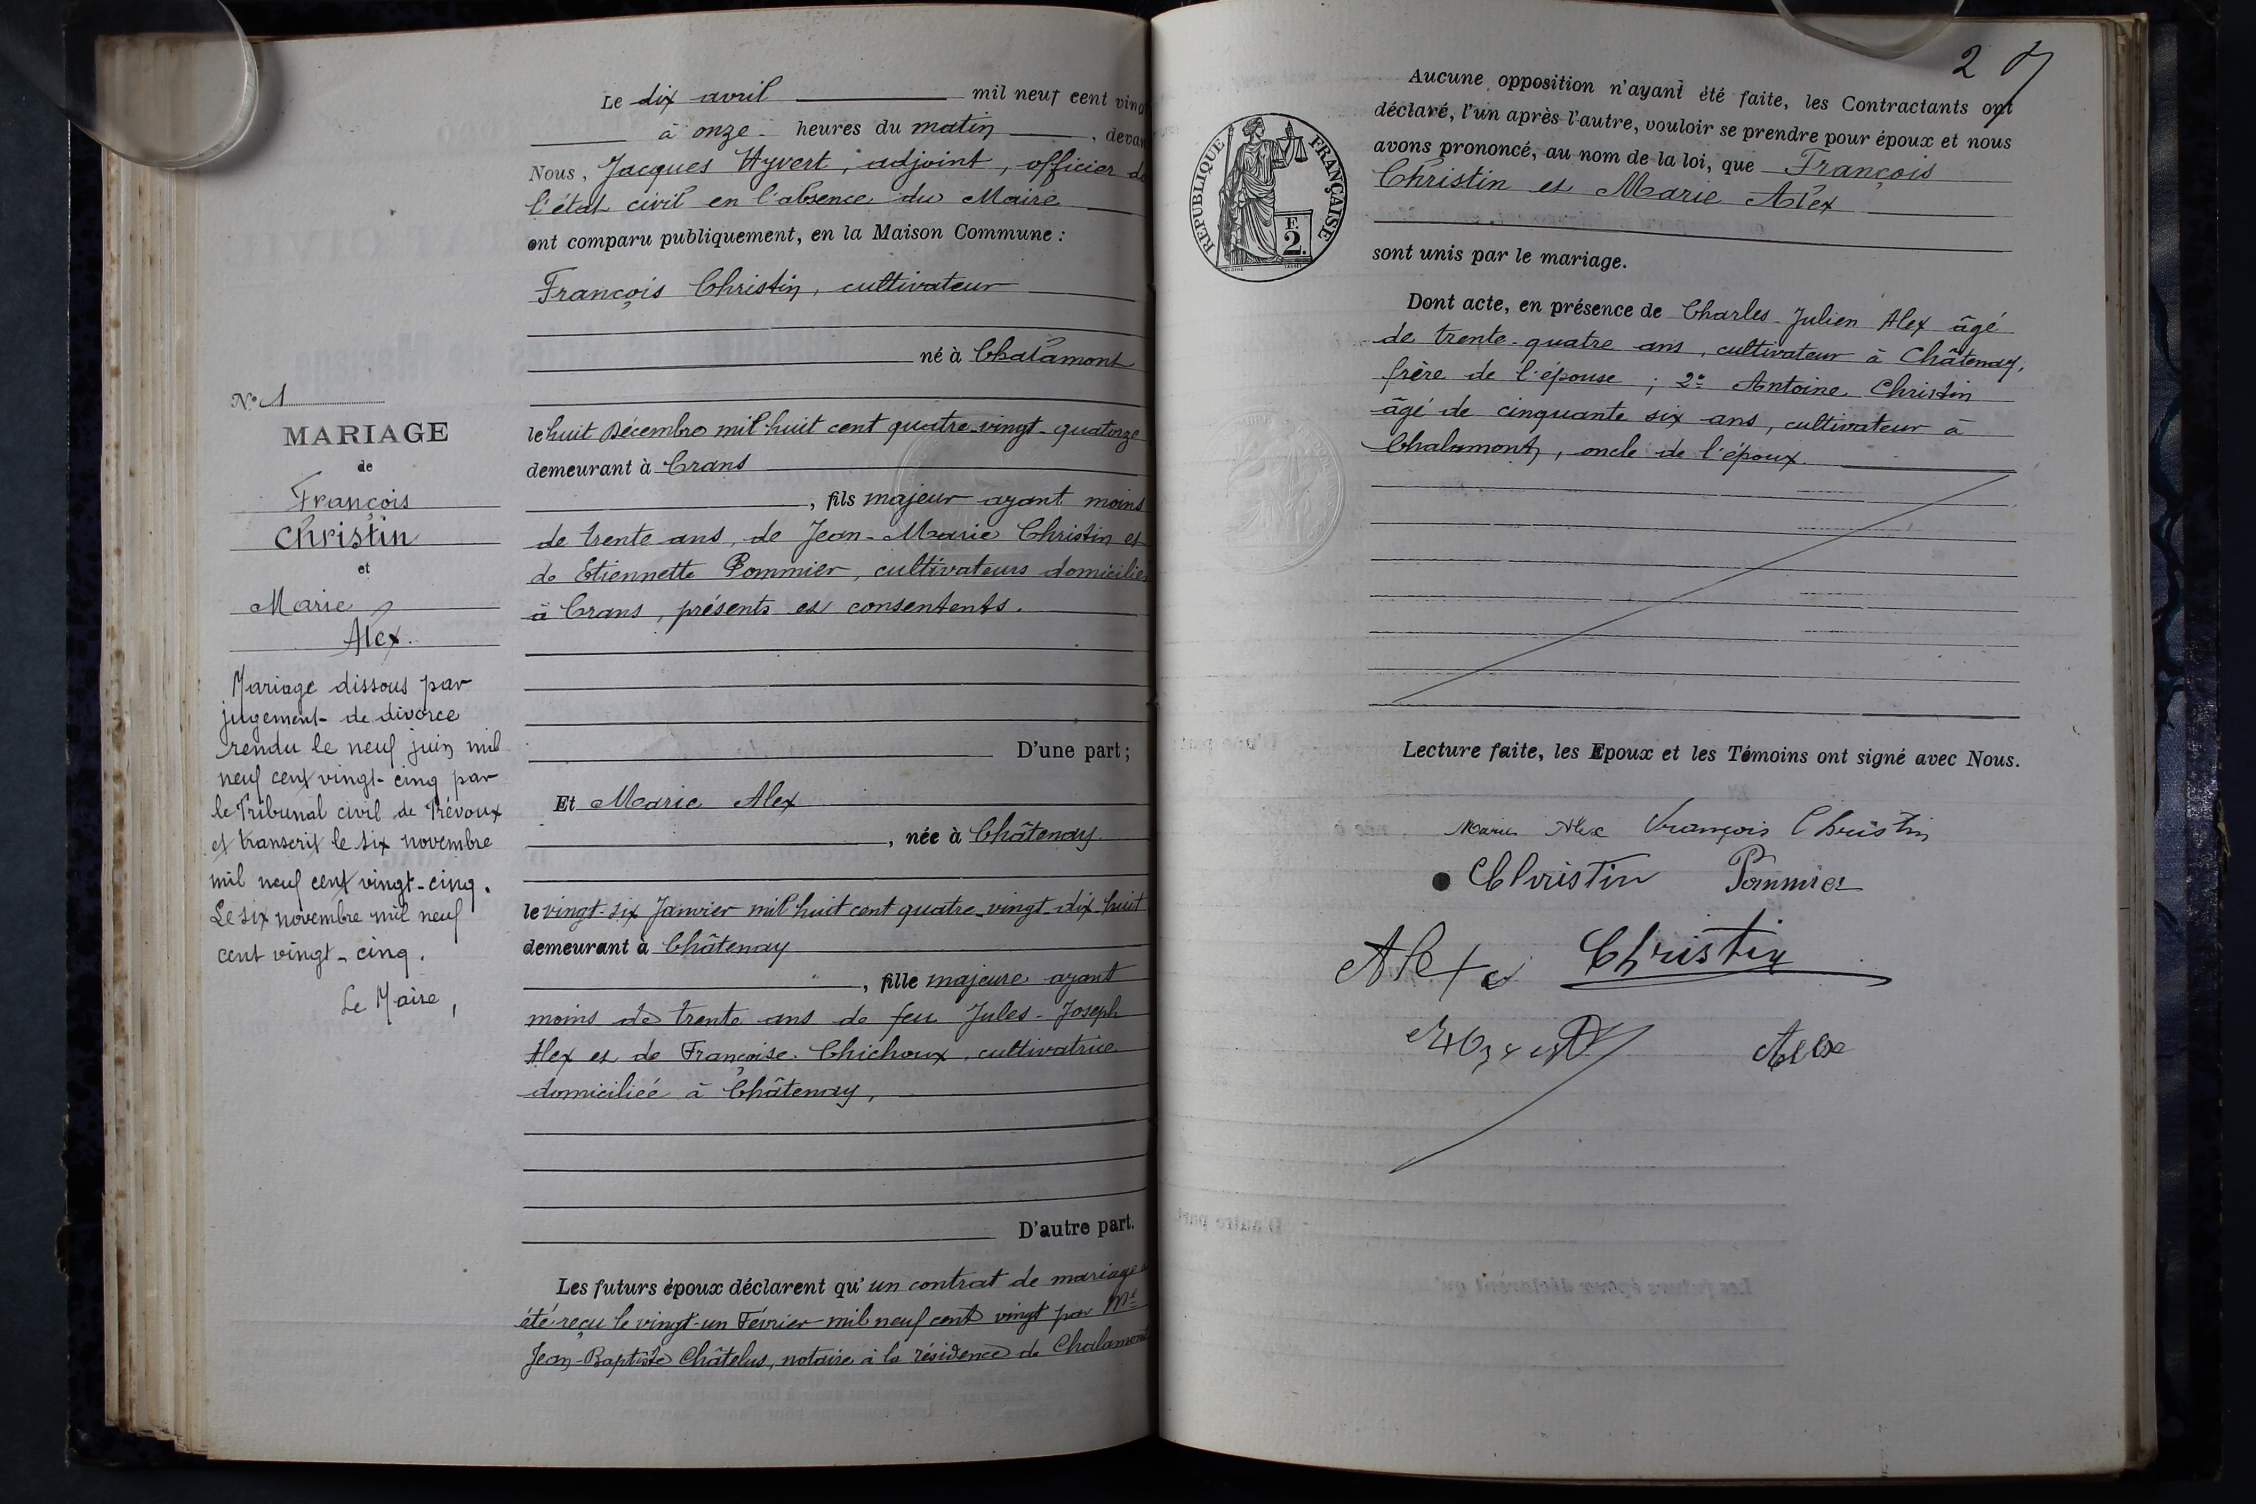 Le dix avril mil neuf cent ving
à onze heures du matin, devan
Nous, Jacques Hyvert, adjoint, officier de
l'état civil en l'absence du Maire
ont comparu publiquement, en la Maison Commune :
François Christin, cultivateur
né à Chalamont
le huit Décembre mil huit cent quatre-vingt-quatorze
demeurant à Crans
, fils majeur ayant moins
de trente ans, de Jean-Marie Christin et
de Etiennette Pommier, cultivateurs domiciliés
à Crans, présents et consentents.
D'une part ;
Et Marie Alex
, née à Châtenay
le vingt-six Janvier mil huit cent quatre-vingt-dix-huit
demeurant à Châtenay
, fille majeure ayant
moins de trente ans de feu Jules-Joseph
Alex et de Françoise Chichoux, cultivatrice
domiciliée à Châtenay,
D'autre part.
Les futurs époux déclarent qu'un contrat de mariage a
été reçu le vingt-un Février mil neuf cent vingt par Me
Jean-Baptiste Châtelus, notaire à la résidence de Chalamont
N° 1
MARIAGE
de
François
Christin
et
Marie
Alex.
Mariage dissous par
jugement de divorce
rendu le neuf juin mil
neuf cent vingt-cinq par
le Tribunal civil de Trévoux
et transcrit le six novembre
mil neuf cent vingt-cinq.
Le six novembre mil neuf
cent vingt-cinq.
Le Maire,
2
Aucune opposition n'ayant été faite, les Contractants ont
déclaré, l'un après l'autre, vouloir se prendre pour époux et nous
avons prononcé, au nom de la loi, que François
Christin et Marie Alex
sont unis par le mariage.
RÉPUBLIQUE FRANÇAISE
F.
2.
Dont acte, en présence de Charles-Julien Alex âgé
de trente-quatre ans, cultivateur à Châtenay,
frère de l'épouse ; 2° Antoine Christin
âgé de cinquante six ans, cultivateur à
Chalamont, oncle de l'époux.
Lecture faite, les Epoux et les Témoins ont signé avec Nous.
Marie Alex François Christin
Christin Pommier
Alex Christin
Alex